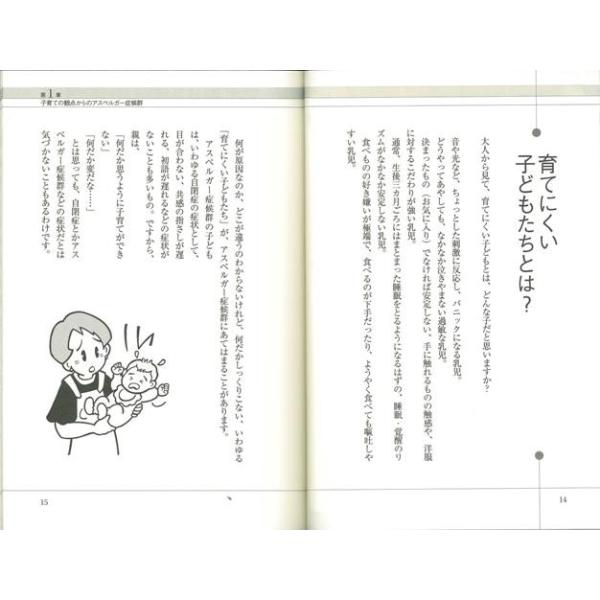 育てにくい
子どもたちとは？
大人から見て、育てにくい子どもとは、どんな子だと思いますか？
音や光など、ちょっとした刺激に反応し、パニックになる乳児。
どうやってあやしても、なかなか泣きやまない過敏な乳児。
決まったもの（お気に入り）でなければ安定しない、手に触れるものの触感や、洋服
に対するこだわりが強い乳児。
通常、生後三カ月ごろにはまとまった睡眠をとるようになるはずの、睡眠・覚醒のリ
ズムがなかなか安定しない乳児。
食べものの好き嫌いが極端で、食べるのが下手だったり、ようやく食べても嘔吐しや
すい乳児。
14
第1章
子育ての観点からのアスペルガー症候群
何が原因なのか、どこが違うのわからないけれど、何だかしっくりこない、いわゆる
「育てにくい子どもたち」が、アスペルガー症候群にあてはまることがあります。
アスペルガー症候群の子ども
は、いわゆる自閉症の症状として、
目が合わない、共感の指さしが遅
れる、初語が遅れるなどの症状が
ないことも多いもの。ですから、
親は、
「何だか思うように子育てができ
ない」
「何だか変だな……」
とは思っても、自閉症とかアス
ペルガー症候群などの症状だとは
気づかないこともあるわけです。
15